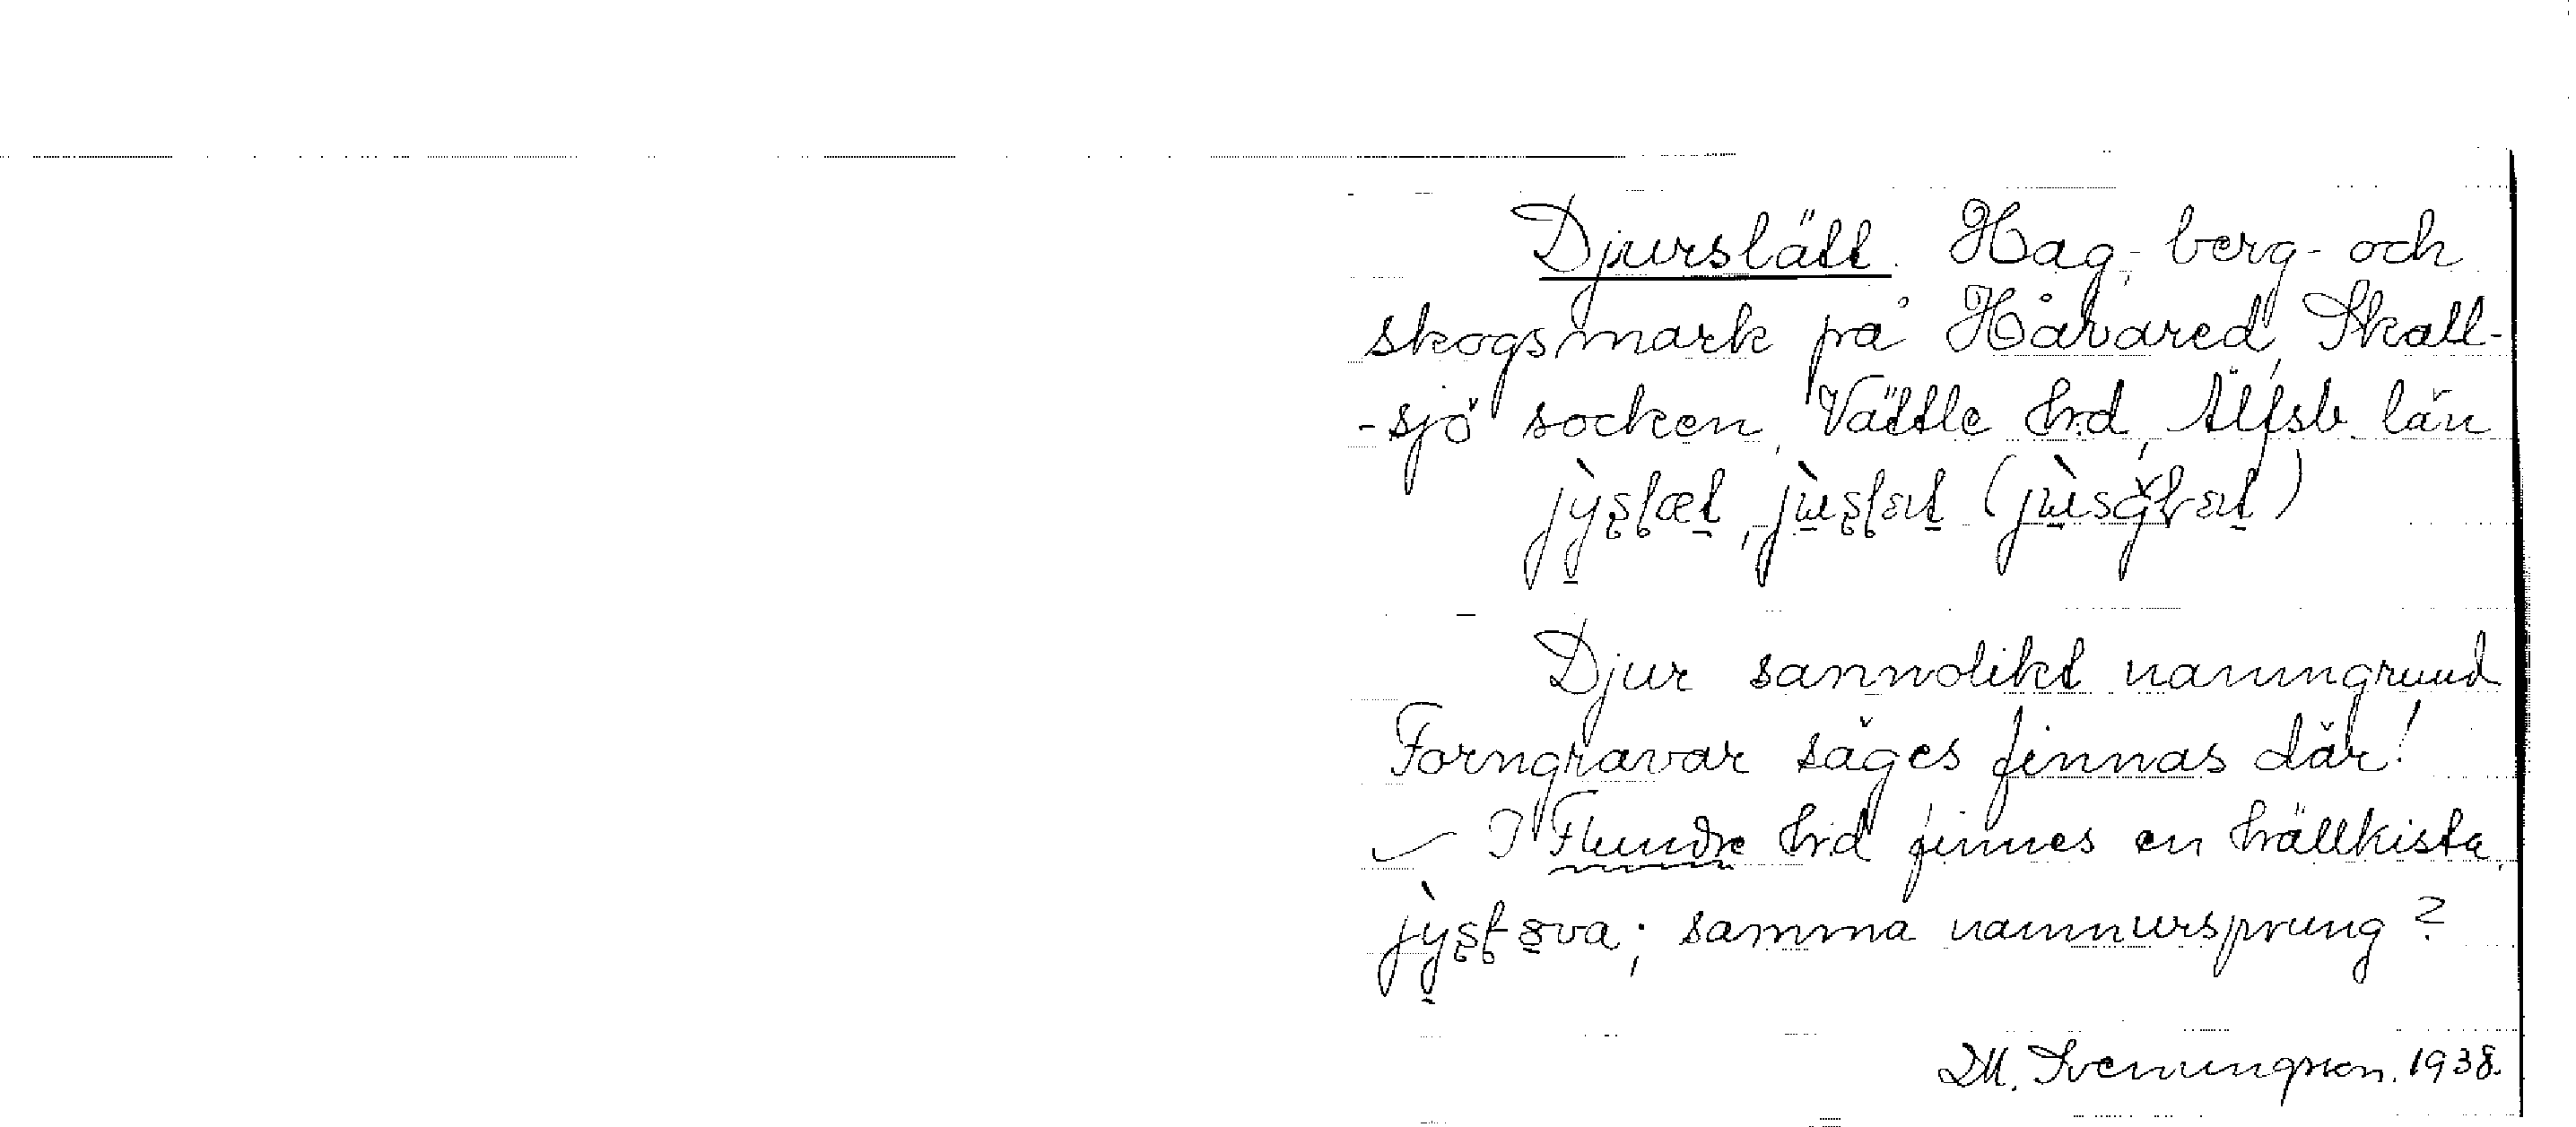 Djurslätt. Hag-, berg- och
skogsmark på Håvared, Skall-
-sjö socken, Vättle hrd, Älfsb. län
Djur sannolikt namngrund
Forngravar säges finnas där!
I Flundre hrd finnes en hällkista,
; samma namnursprung?
D.M. Svenungsson. 1938.